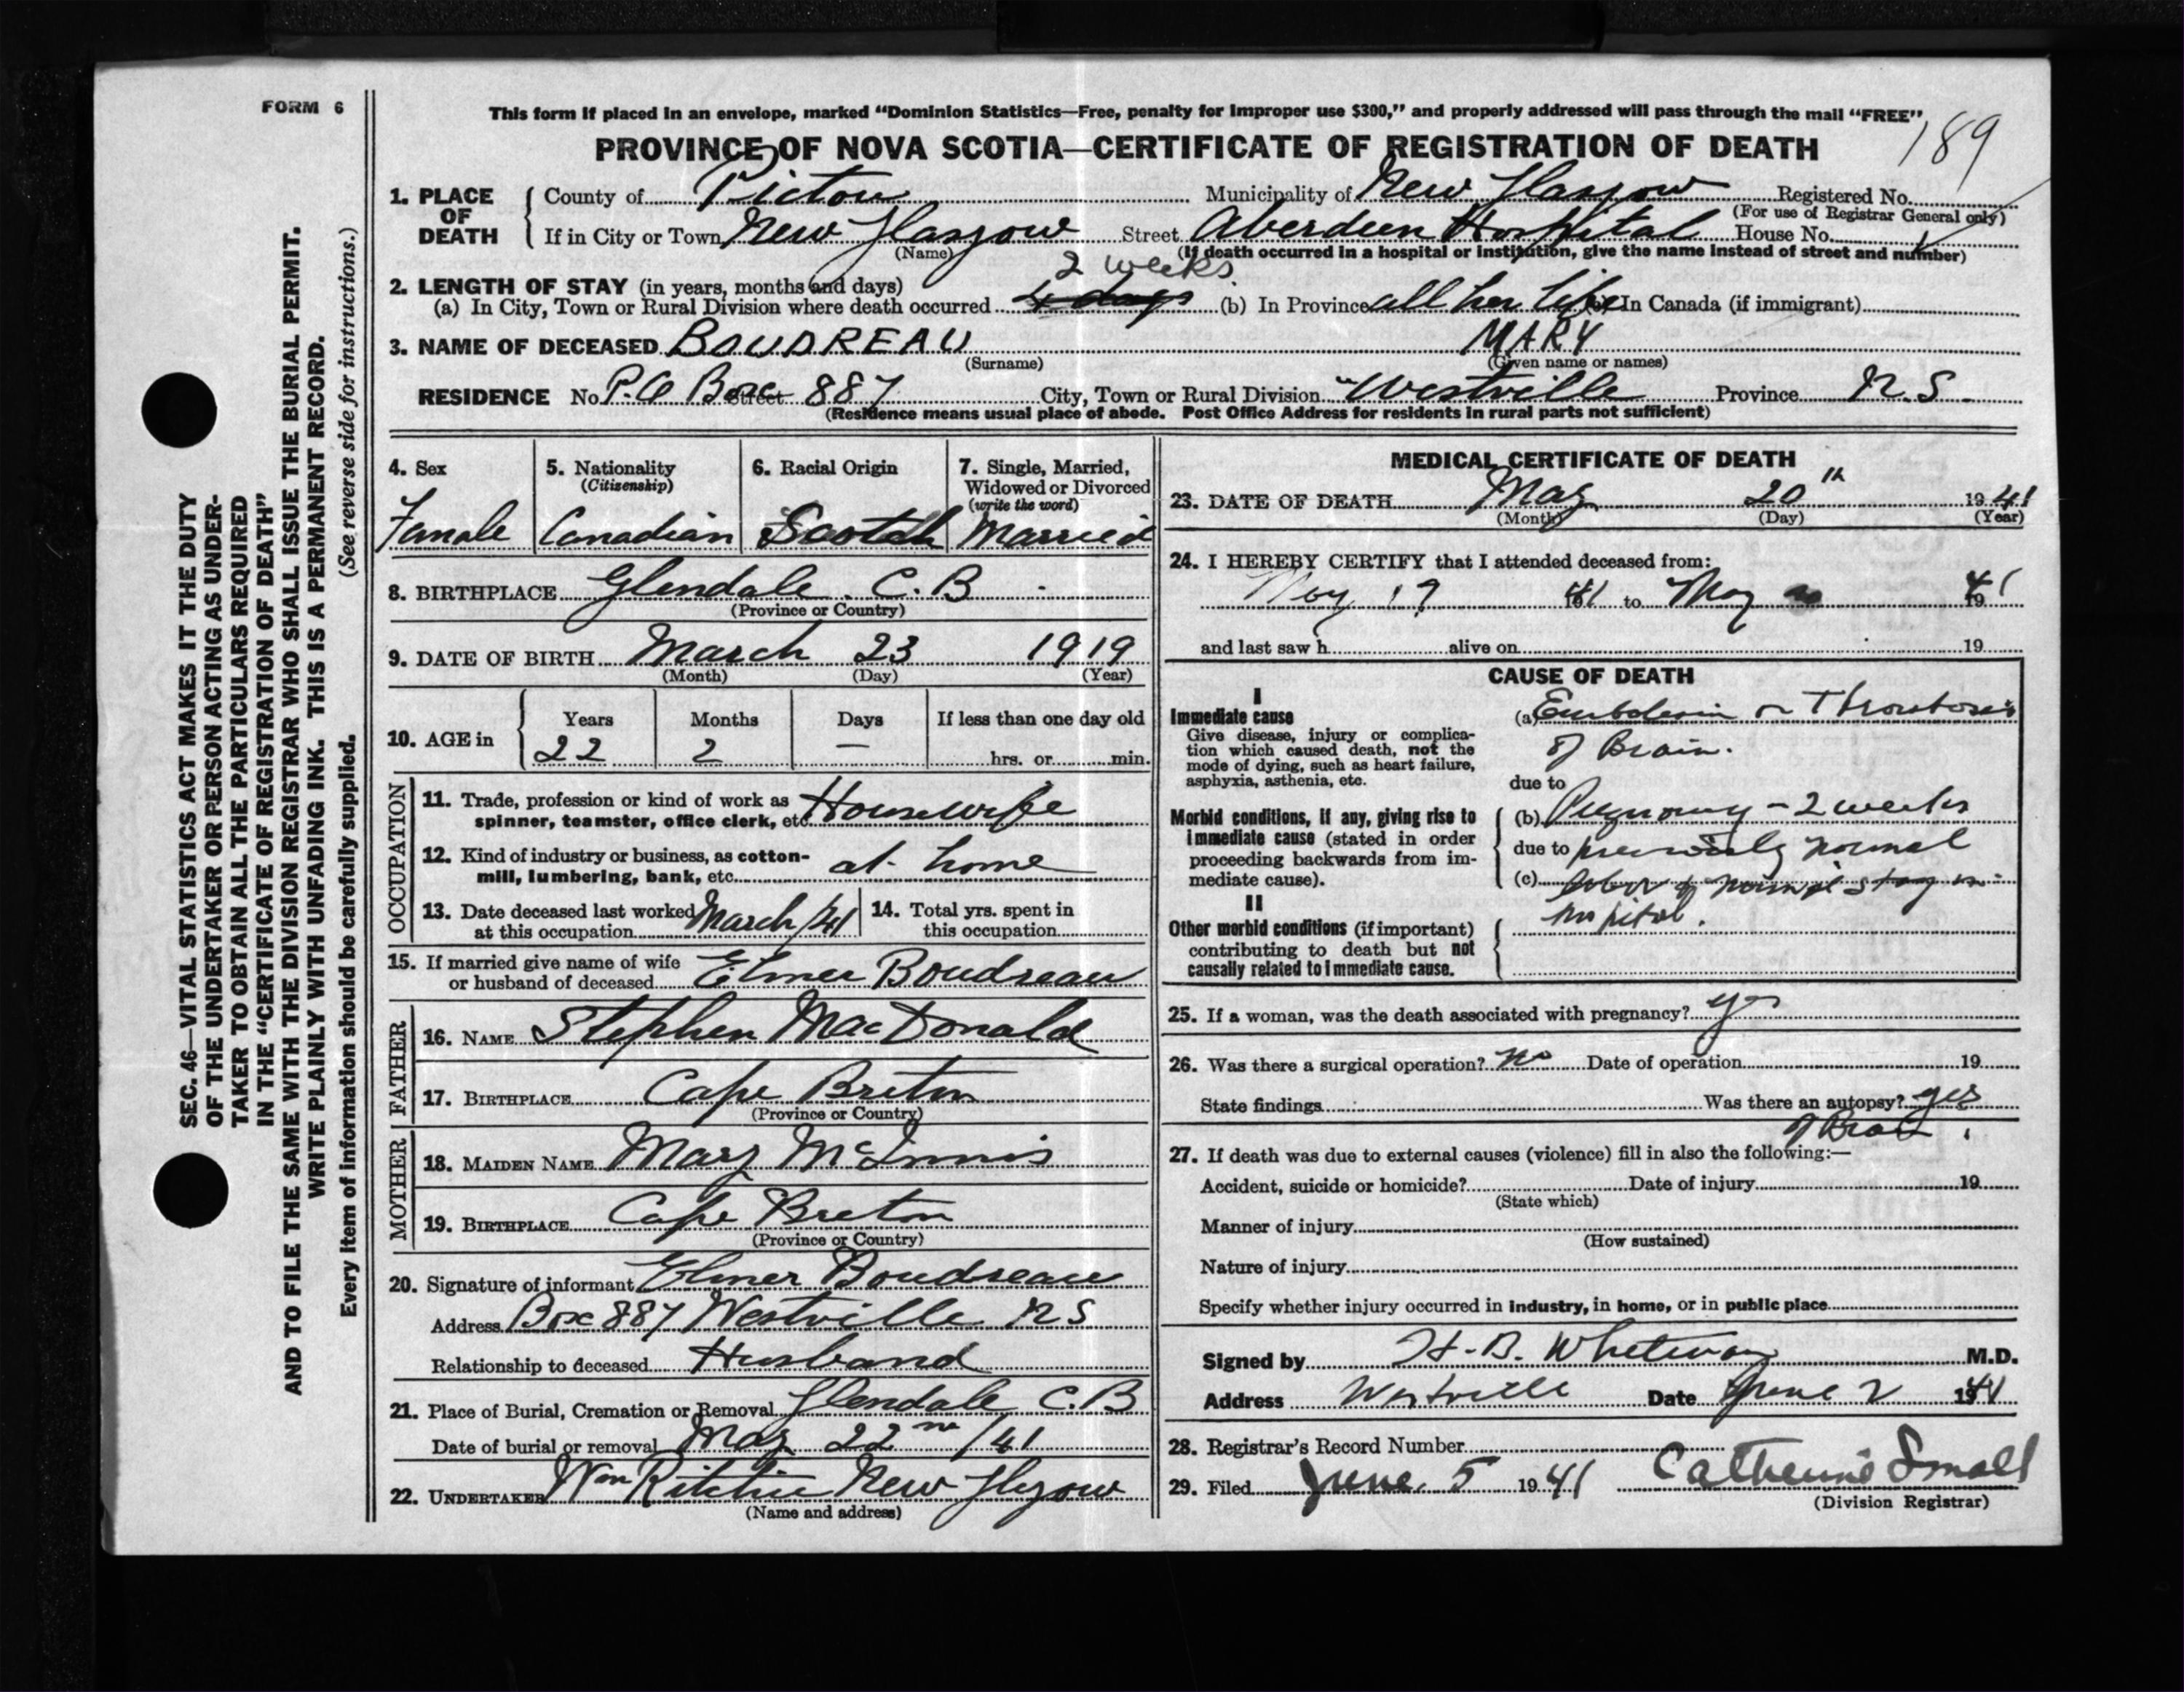 FORM 6
This form if placed in an envelope, marked “Dominion Statistics—Free, penalty for improper use $300,” and properly addressed will pass through the mail “FREE”
189
PROVINCE OF NOVA SCOTIA—CERTIFICATE OF REGISTRATION OF DEATH
1. PLACE OF DEATH
County of Pictou Municipality of New Glasgow Registered No.
(For use of Registrar General only)
If in City or Town New Glasgow Street Aberdeen Hospital House No.
(Name) (If death occurred in a hospital or institution, give the name instead of street and number)
2 weeks
2. LENGTH OF STAY (in years, months and days)
(a) In City, Town or Rural Division where death occurred 4 days (b) In Province all her life (c) In Canada (if immigrant)
3. NAME OF DECEASED BOUDREAU MARY
(Surname) (Given name or names)
RESIDENCE No. P.O Box Street 887 City, Town or Rural Division Westville Province N.S.
(Residence means usual place of abode. Post Office Address for residents in rural parts not sufficient)
SEC. 46—VITAL STATISTICS ACT MAKES IT THE DUTY
OF THE UNDERTAKER OR PERSON ACTING AS UNDER-
TAKER TO OBTAIN ALL THE PARTICULARS REQUIRED
IN THE “CERTIFICATE OF REGISTRATION OF DEATH”
AND TO FILE THE SAME WITH THE DIVISION REGISTRAR WHO SHALL ISSUE THE BURIAL PERMIT.
WRITE PLAINLY WITH UNFADING INK. THIS IS A PERMANENT RECORD.
Every item of information should be carefully supplied. (See reverse side for instructions.)
4. Sex
Female
5. Nationality
(Citizenship)
Canadian
6. Racial Origin
Scotch
7. Single, Married,
Widowed or Divorced
(write the word)
Married
8. BIRTHPLACE Glendale. C.B.
(Province or Country)
9. DATE OF BIRTH March 23 1919
(Month) (Day) (Year)
10. AGE in
Years Months Days If less than one day old
22 2 — hrs. or min.
OCCUPATION
11. Trade, profession or kind of work as
spinner, teamster, office clerk, etc. Housewife
12. Kind of industry or business, as cotton-
mill, lumbering, bank, etc. at home
13. Date deceased last worked
at this occupation March/41
14. Total yrs. spent in
this occupation
15. If married give name of wife
or husband of deceased Elmer Boudreau
FATHER
16. NAME Stephen MacDonald
17. BIRTHPLACE Cape Breton
(Province or Country)
MOTHER
18. MAIDEN NAME Mary McInnis
19. BIRTHPLACE Cape Breton
(Province or Country)
20. Signature of informant Elmer Boudreau
Address Box 887 Westville NS
Relationship to deceased Husband
21. Place of Burial, Cremation or Removal Glendale C.B
Date of burial or removal May 22nd/41
22. UNDERTAKER Wm Ritchie New Glasgow
(Name and address)
MEDICAL CERTIFICATE OF DEATH
23. DATE OF DEATH May 20th 1941
(Month) (Day) (Year)
24. I HEREBY CERTIFY that I attended deceased from:
May 19 1941 to May 1941
and last saw h alive on 19
CAUSE OF DEATH
I
Immediate cause
Give disease, injury or complica-
tion which caused death, not the
mode of dying, such as heart failure,
asphyxia, asthenia, etc.
(a) Embolism or Thrombosis
of Brain.
due to
Morbid conditions, if any, giving rise to
immediate cause (stated in order
proceeding backwards from im-
mediate cause).
(b) Pregnancy - 2 weeks
due to previously normal
(c) labor & normal stay in
hospital.
II
Other morbid conditions (if important)
contributing to death but not
causally related to immediate cause.
25. If a woman, was the death associated with pregnancy? yes
26. Was there a surgical operation? No Date of operation 19
State findings Was there an autopsy? yes
of Brain
27. If death was due to external causes (violence) fill in also the following:—
Accident, suicide or homicide? Date of injury 19
(State which)
Manner of injury
(How sustained)
Nature of injury
Specify whether injury occurred in industry, in home, or in public place
Signed by H.B. Whiteway M.D.
Address Westville Date June 2 1941
28. Registrar’s Record Number
29. Filed June 5 1941 Catherine Small
(Division Registrar)